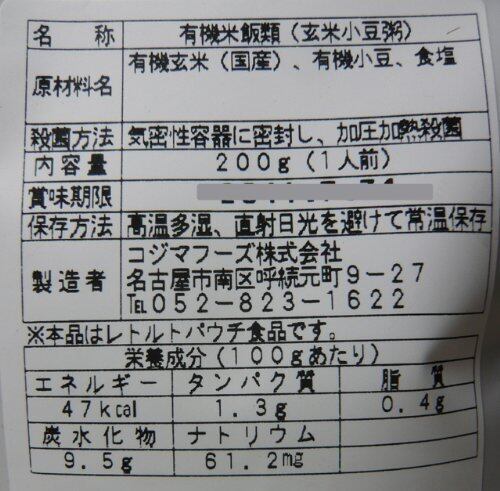 名 称 有機米飯類（玄米小豆粥）
原材料名 有機玄米（国産）、有機小豆、食塩
殺菌方法 気密性容器に密封し、加圧加熱殺菌
内容量 200g（1人前）
賞味期限
保存方法 高温多湿、直射日光を避けて常温保存
製造者 コジマフーズ株式会社
名古屋市南区呼続元町9-27
℡052-823-1622
※本品はレトルトパウチ食品です。
栄養成分（100gあたり）
エネルギー タンパク質 脂質
47kcal 1.3g 0.4g
炭水化物 ナトリウム
9.5g 61.2mg